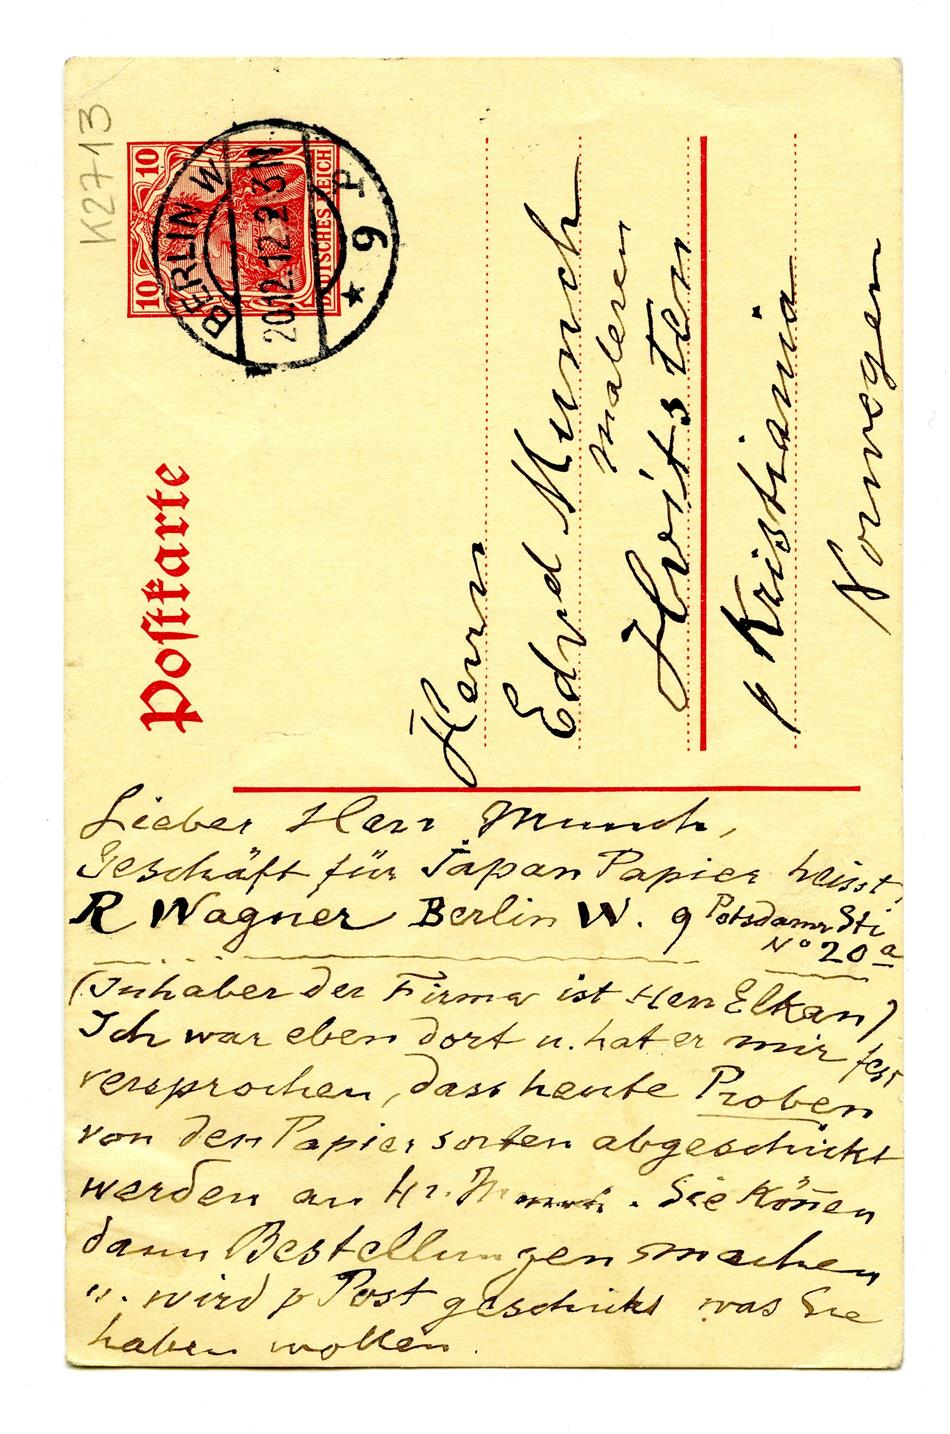 K2713
10
10
DEUTSCHES REICH
BERLIN W
20.12.12 2-3 N
* 9 P
Postkarte
Herrn
Edvd Munch
maleren
Hvitsten
p Kristiania
Norwegen
Lieber Herr Munch,
Geschäft für Japan Papier heisst,
R Wagner Berlin W. 9 Potsdamr Str
No 20a
(Inhaber der Firma ist Herr Elkan)
Ich war eben dort u. hat er mir fest
versprochen, dass heute Proben
von den Papiersorten abgeschickt
werden an Hr. Munch. Sie kön̄en
dann Bestellungen machen
u. wird p Post geschickt was Sie
haben wollen.